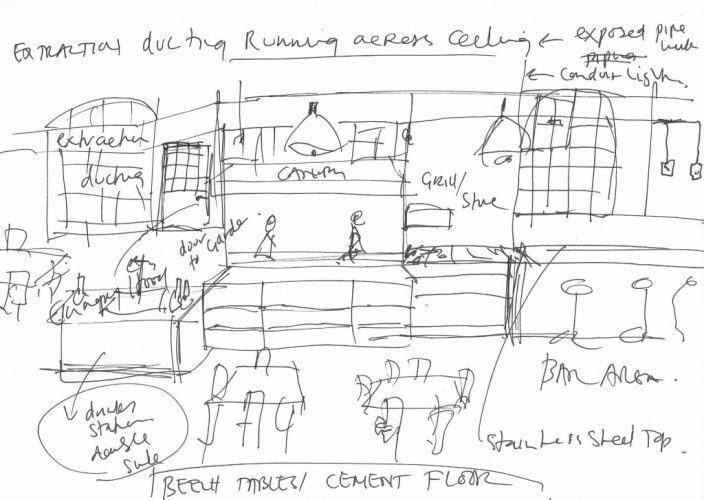 EXTRACTION ducting Running across Ceeling ← exposed pipe
work
← Conduit Lighting
extraction
ducting
CANOPY
GRILL/
Stove
door
to
garden
wood
BAR AREA.
Station
double
Sink
Stainless Steel Top.
BEECH TABLES/ CEMENT FLOOR